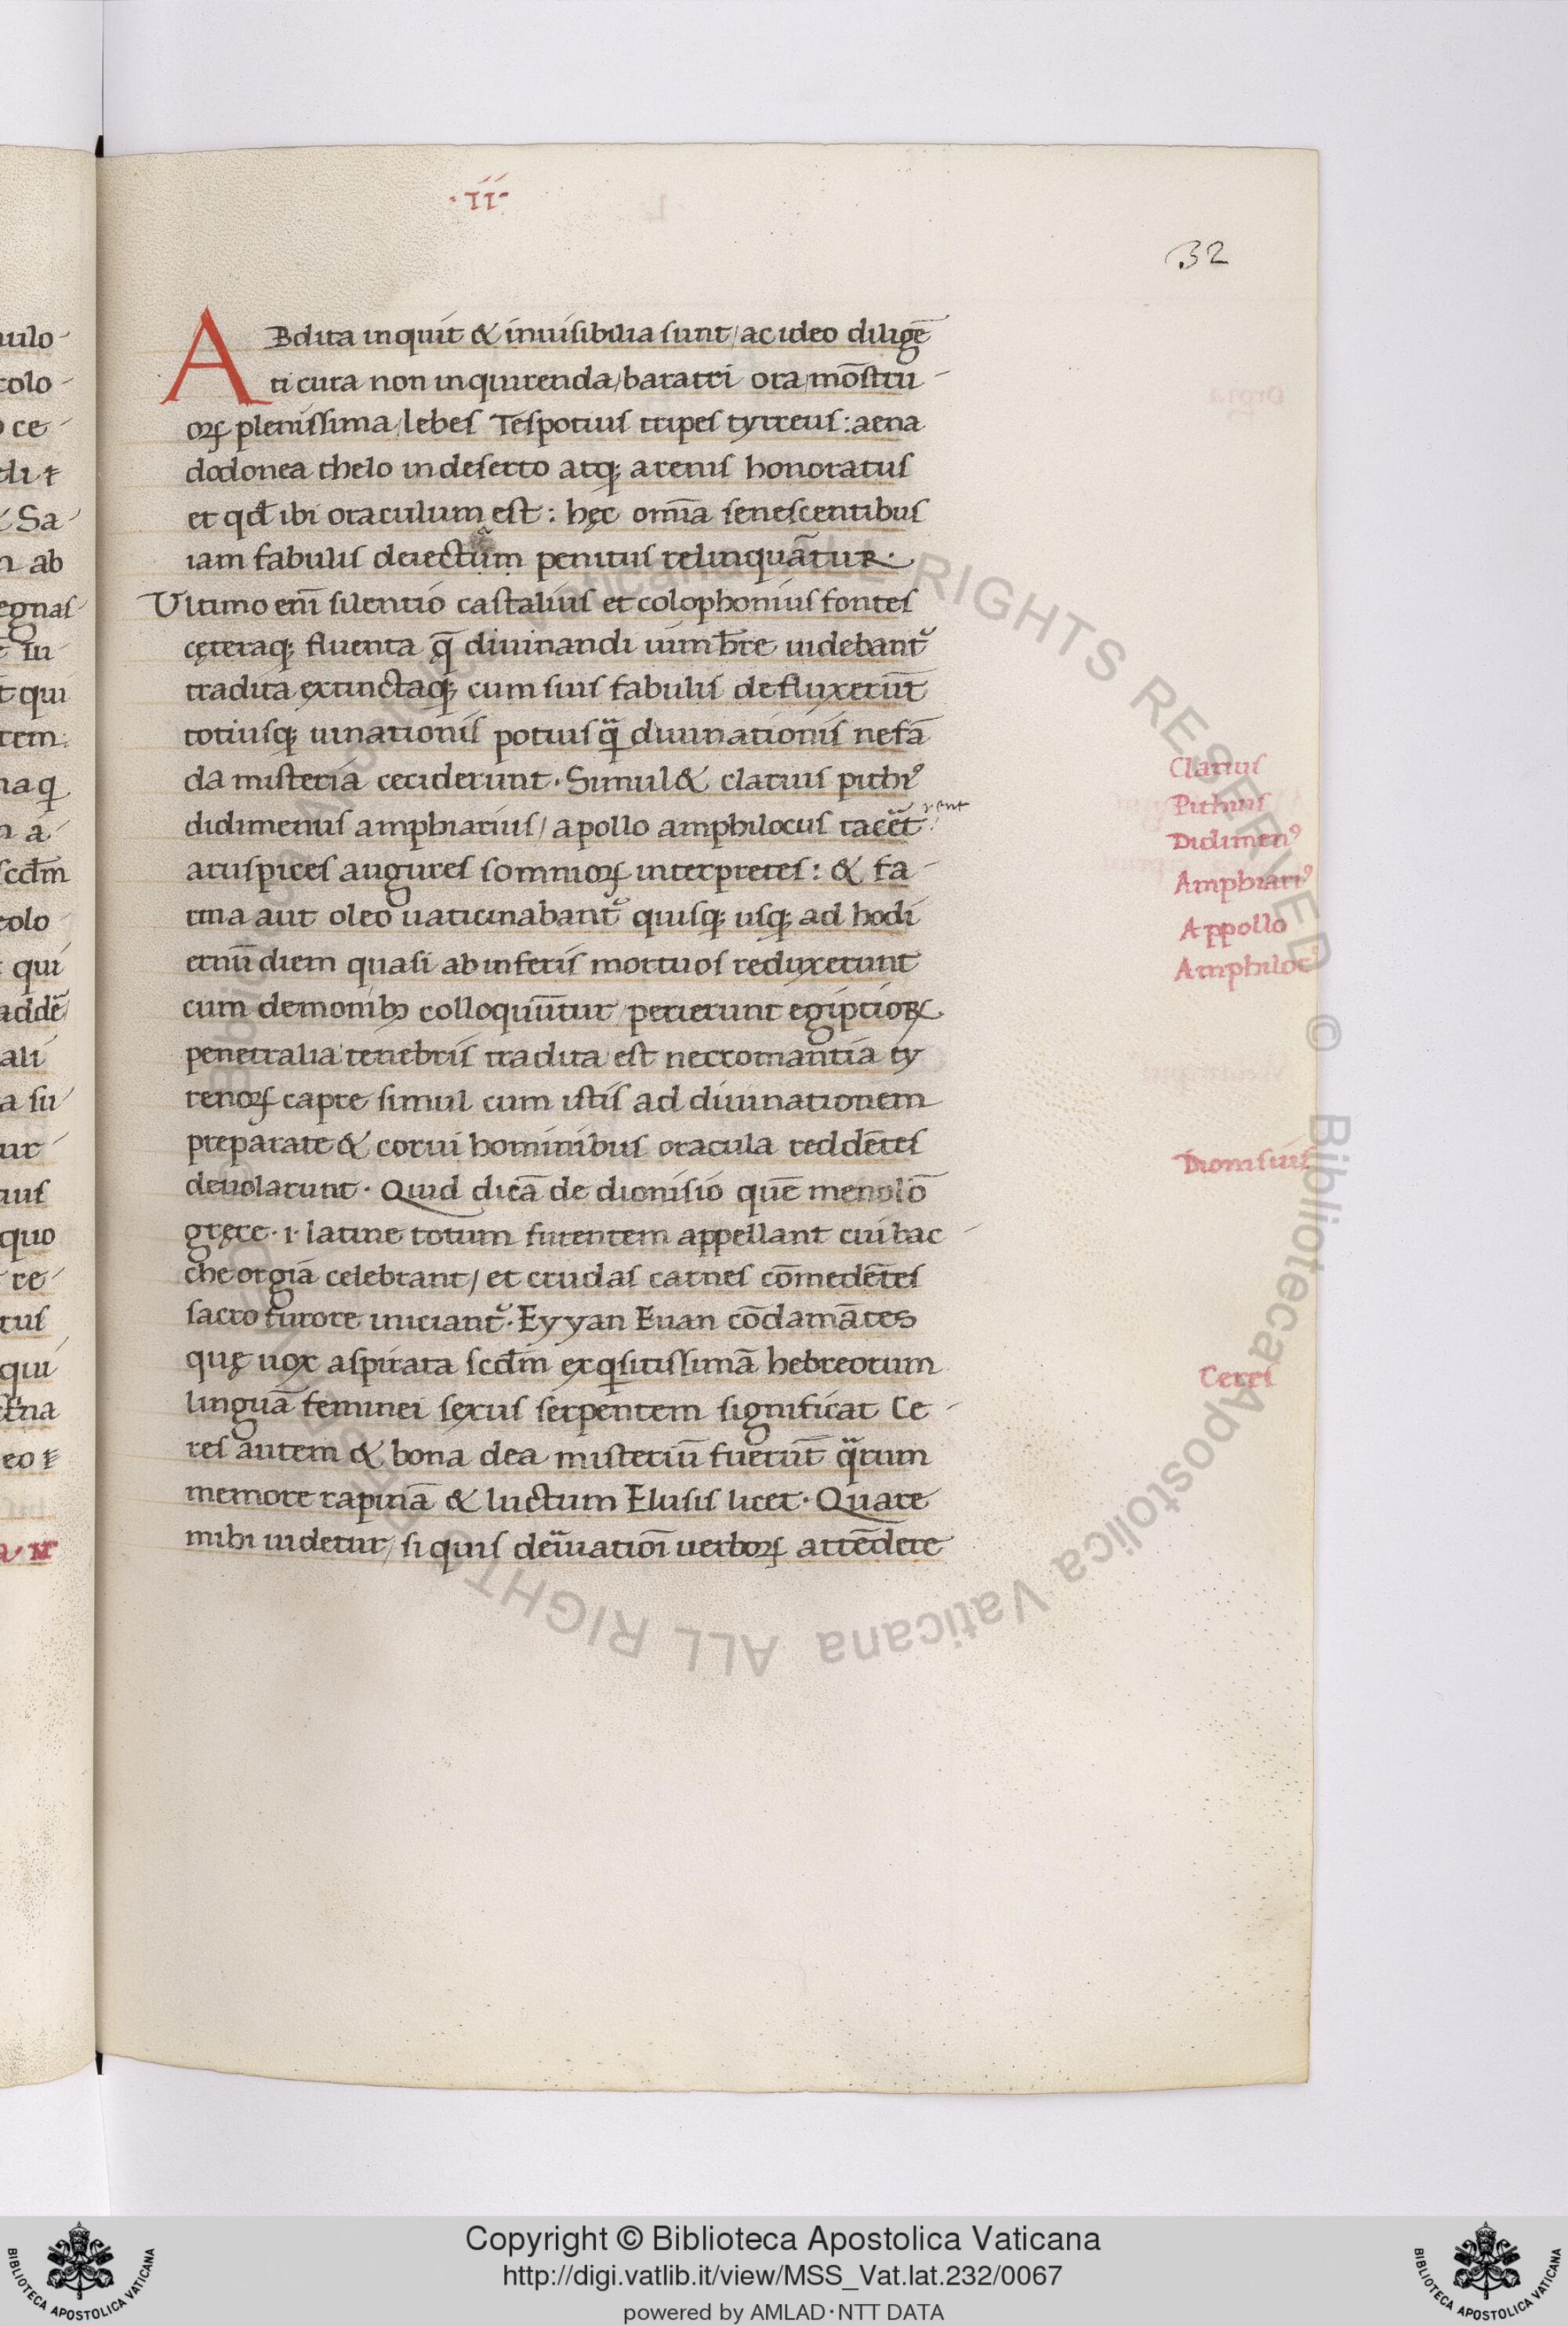 ·II·
32
ABdita inquit & inuisibilia sunt/ac ideo diligē
ti cura non inquirenda/baratri ora/mōstru
orꝝ plenissima/lebes Tespotius tripes tyrreus:aena
dodonea thelo in deserto atqꝫ arenis honoratus
et qđ ibi oraculum est: hęc omīa senescentibus
iam fabulis deiectum penitus relinquāтur.
Vltimo eni̅ silentio castalius et colophonius fontes
cęteraqꝫ fluenta q̄ diuinandi uim hr̄e uidebant᷑
tradita extinctaqꝫ cum suis fabulis defluxerūt
totiusqꝫ uinationis potius qᷓ diuinationis nefā
da misteria ceciderunt. Simul & clarius pithiꝰ
didimenus amphiarius/apollo amphilocus tacēt
aruspices augures somniorꝝ interpretes: & fa
rina aut oleo uaticinabant᷑ quisqꝫ usqꝫ ad hodi
ernū diem quasi ab inferis mortuos reduxerunt
cum demonibꝫ colloquūtur/perierunt egiptiorꝝ
penetralia tenebris tradita est necromantia ty
renorꝝ capre simul cum istis ad diuinationem
preparate & corui hominibus oracula reddētes
deuolarunt. Quid dicā de dionisio quē menolō
gręce .i. latine totum furentem appellant cui bac
che orgia celebrant/et crudas carnes cōmedētes
sacro furore iniciant᷑. Eyyan Euan cōclamātes
quę uox aspirata scđm exqisitissimā hebreorum
linguā feminei sexus serpentem significat Ce
res autem & bona dea misteriū fuerūt qᷓrum
memore rapinā & luctum Elusis licet. Quare
mihi uidetur/si quis deiuatiōi uerborꝝ attēdere
Clarius
Pithius
Didimenꝰ
Amphiariꝰ
Appollo
Amphilocꝰ
Dionisius
Ceres
Copyright © Biblioteca Apostolica Vaticana
http://digi.vatlib.it/view/MSS_Vat.lat.232/0067
powered by AMLAD·NTT DATA
BIBLIOTECA APOSTOLICA VATICANA
BIBLIOTECA APOSTOLICA VATICANA